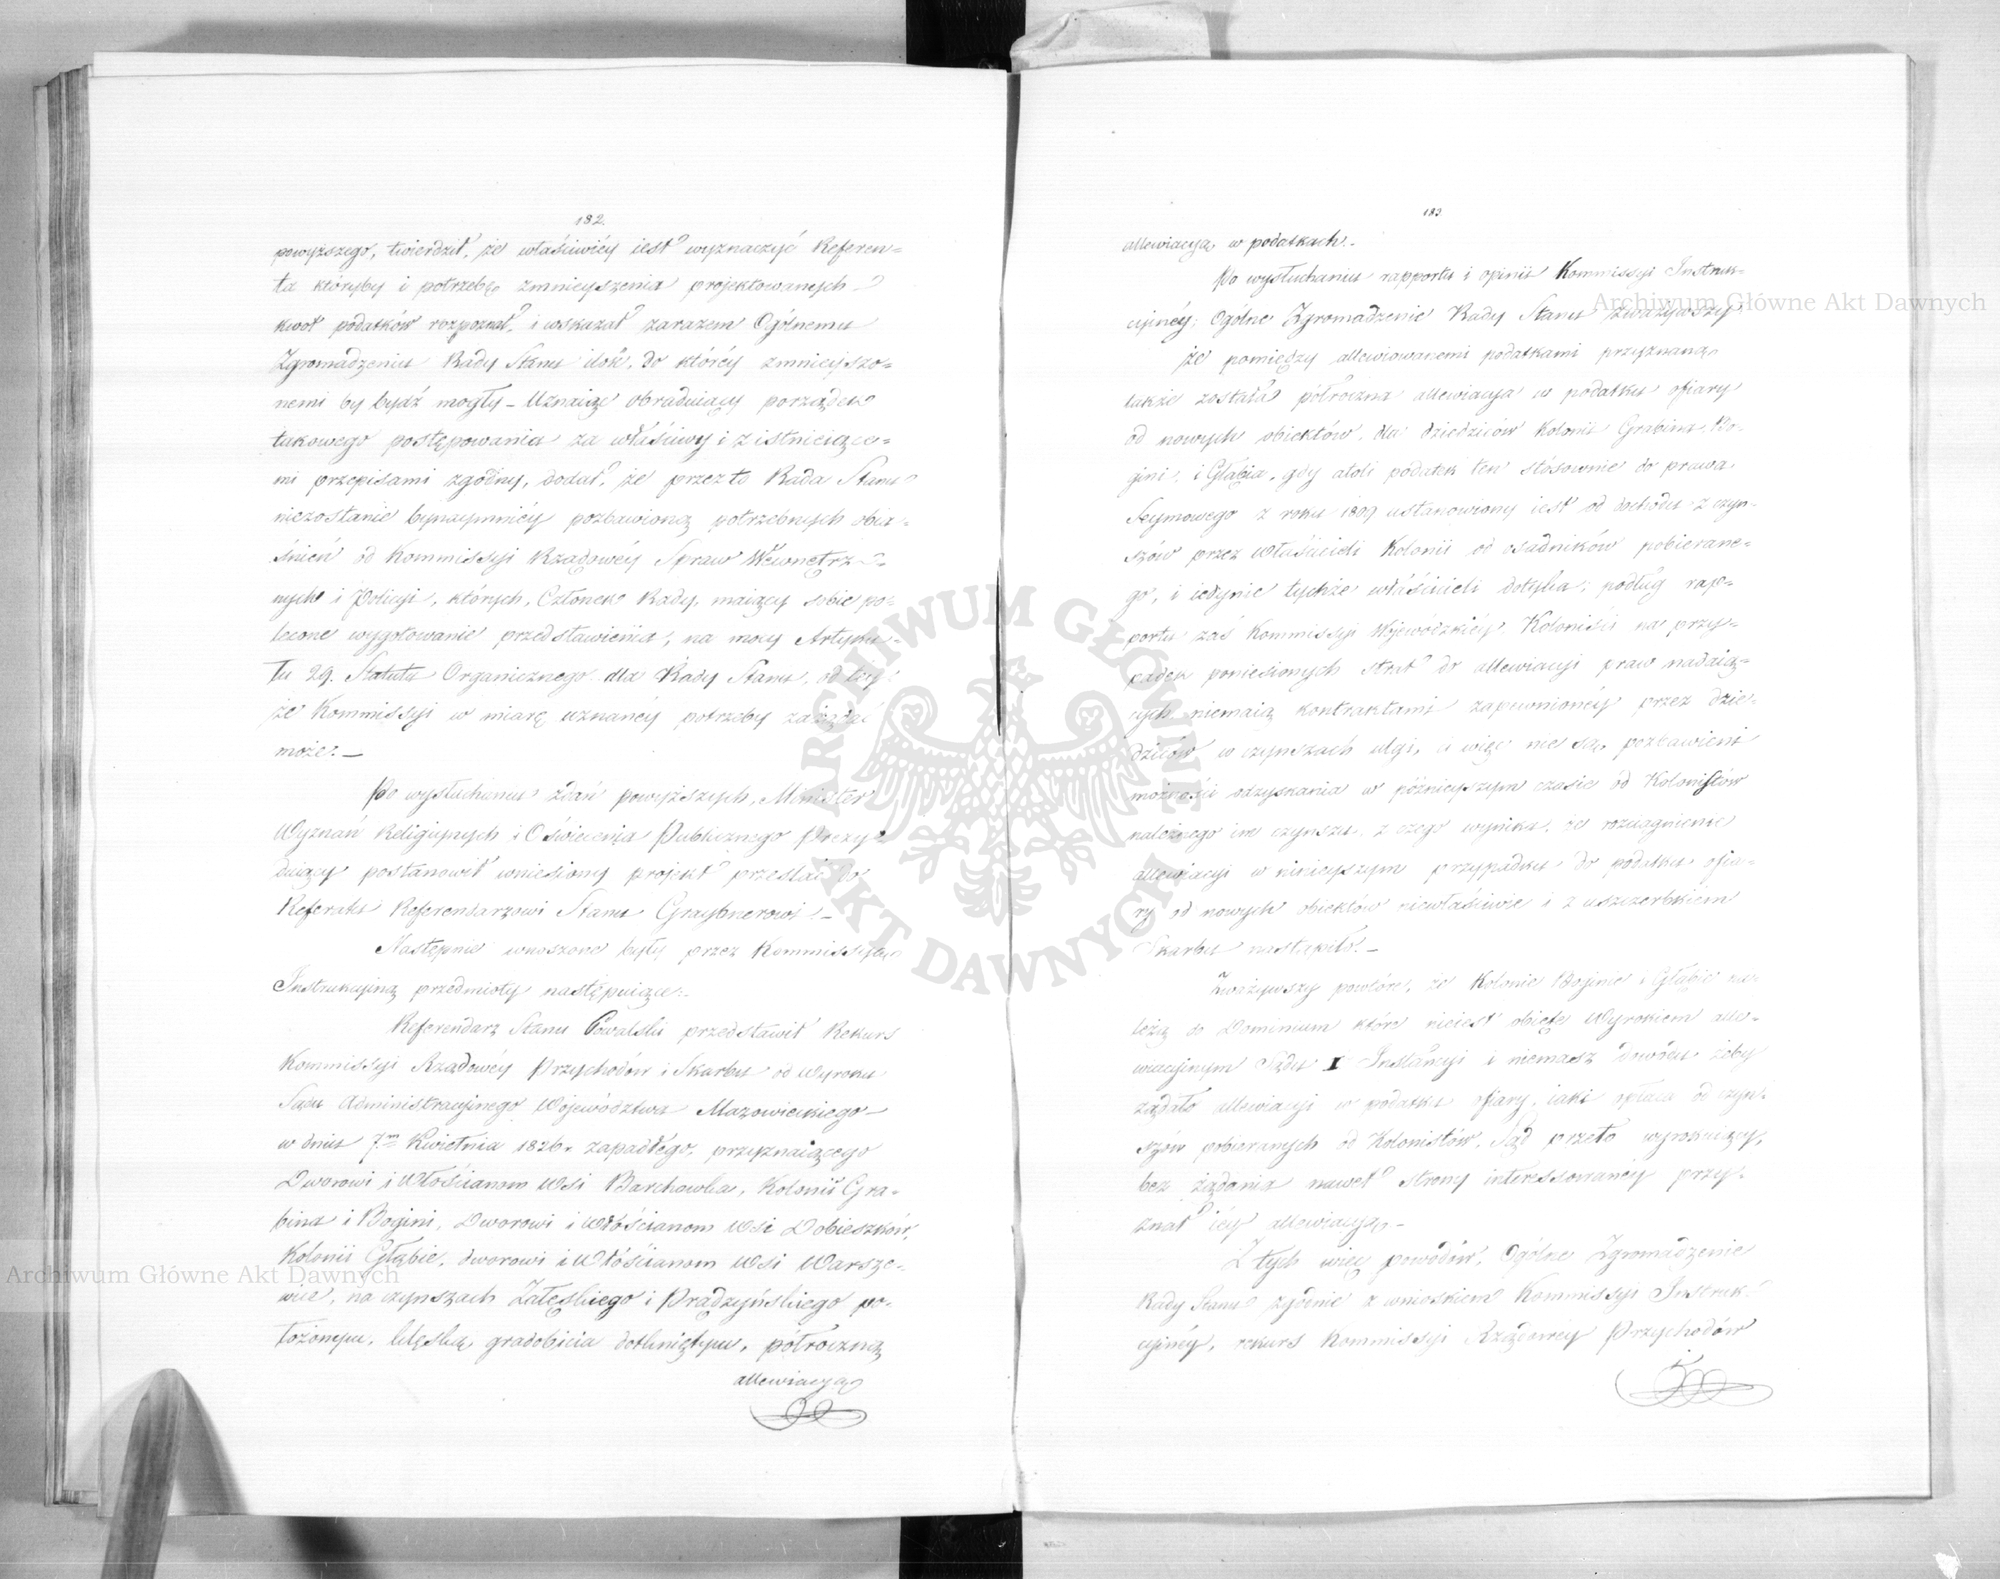 182.
powyższego, twierdził, że właściwiéy iest wyznaczyć Referen-
ta któryby i potrzebę zmnieyszenia projektowanych
kwot podatków rozpoznał, i wskazał zarazem Ogólnemu
Zgromadzeniu Rady Stanu ilość, do któréy zmnieyszo-
nemi by bydź mogły – Uznaiąc obraduiący porządek
takowego postępowania za właściwy i z istnieiące-
mi przepisami zgodny, dodał, że przez to Rada Stanu
niezostanie bynaymniéy pozbawioną potrzebnych obia-
śnień od Kommissyi Rządowéy Spraw Wewnętrz-
nych i Policyi, których, Członek Rady, maiący sobie po-
lecone wygotowanie przedstawienia, na mocy Artyku-
łu 29. Statutu Organicznego dla Rady Stanu, od tey-
że Kommissyi w miarę uznanéy potrzeby zażądać
może. –
Po wysłuchaniu zdań powyższych, Minister
Wyznań Religiynych i Oświecenia Publicznego Prezy-
duiący postanowił wniesiony projekt przesłać do
Referatu Referendarzowi Stanu Graybnerowi. –
Następnie wnoszone były przez Kommissyą
Instrukcyiną przedmioty następuiące:
Referendarz Stanu Kowalski przedstawił Rekurs
Kommissyi Rządowéy Przychodów i Skarbu od Wyroku
Sądu Administracyinego Województwa Mazowieckiego –
w dniu 7m Kwietnia 1826 r. zapadłego, przyznaiącego
Dworowi i Włościanom Wsi Barchowka, Kolonii Gra-
bina i Bogini, Dworowi i Włościanom Wsi Dobieszków,
Kolonii Głąbie, dworowi i Włościanom Wsi Warsze-
wice, na czynszach Załęskiego i Prądzyńskiego po-
łożonym, klęską gradobicia dotkniętym, półroczną
allewiacyą
183.
allewiacyą w podatkach. –
Po wysłuchaniu rapportu i opinii Kommissyi Instruk-
cyinéy, Ogólne Zgromadzenie Rady Stanu zważywszy,
że pomiędzy allewiowanemi podatkami przyznaną
także została półroczna allewiacya w podatku ofiary
od nowych obiektów, dla dziedziców Kolonii Grabina, Bo-
gini, i Głąbia, gdy atoli podatek ten stósownie do prawa
Seymowego z roku 1809 ustanowiony iest od dochodu z czyn-
szów przez właścicieli Kolonii od osadników pobierane-
go, i iedynie tychże właścicieli dotyka; podług rap-
portu zaś Kommissyi Wojewódzkiéy, Koloniści na przy-
padek poniesionych strat do allewiacyi praw nadaią-
cych niemaią kontraktami zapewnionéy przez dzie-
dziców w czynszach ulgi, ci więc nie są pozbawieni
możności odzyskania w późnieyszym czasie od Kolonistów
należnego im czynszu, z czego wynika, że rozciągnienie
allewiacyi w ninieyszym przypadku do podatku ofia-
ry od nowych obiektów niewłaściwie i z uszczerbkiem
Skarbu nastąpiło. –
Zważywszy powtóre, że Kolonie Boginie i Głąbie na-
leżą do Dominium które nieiest obięte Wyrokiem alle-
wiacyinym Sądu I Instancyi i niemasz dowodu żeby
żądało allewiacyi w podatku ofiary, iaki opłaca od czyn-
szów pobieranych od Kolonistów, Sąd przeto wyrokuiący,
bez żądania nawet strony interessowanéy przy-
znał iéy allewiacyą. –
Z tych więc powodów, Ogólne Zgromadzenie
Rady Stanu zgodnie z wnioskiem Kommissyi Instruk-
cyinéy, rekurs Kommissyi Rządowéy Przychodów
Archiwum Główne Akt Dawnych
Archiwum Główne Akt Dawnych
ARCHIWUM GŁÓWNE AKT DAWNYCH